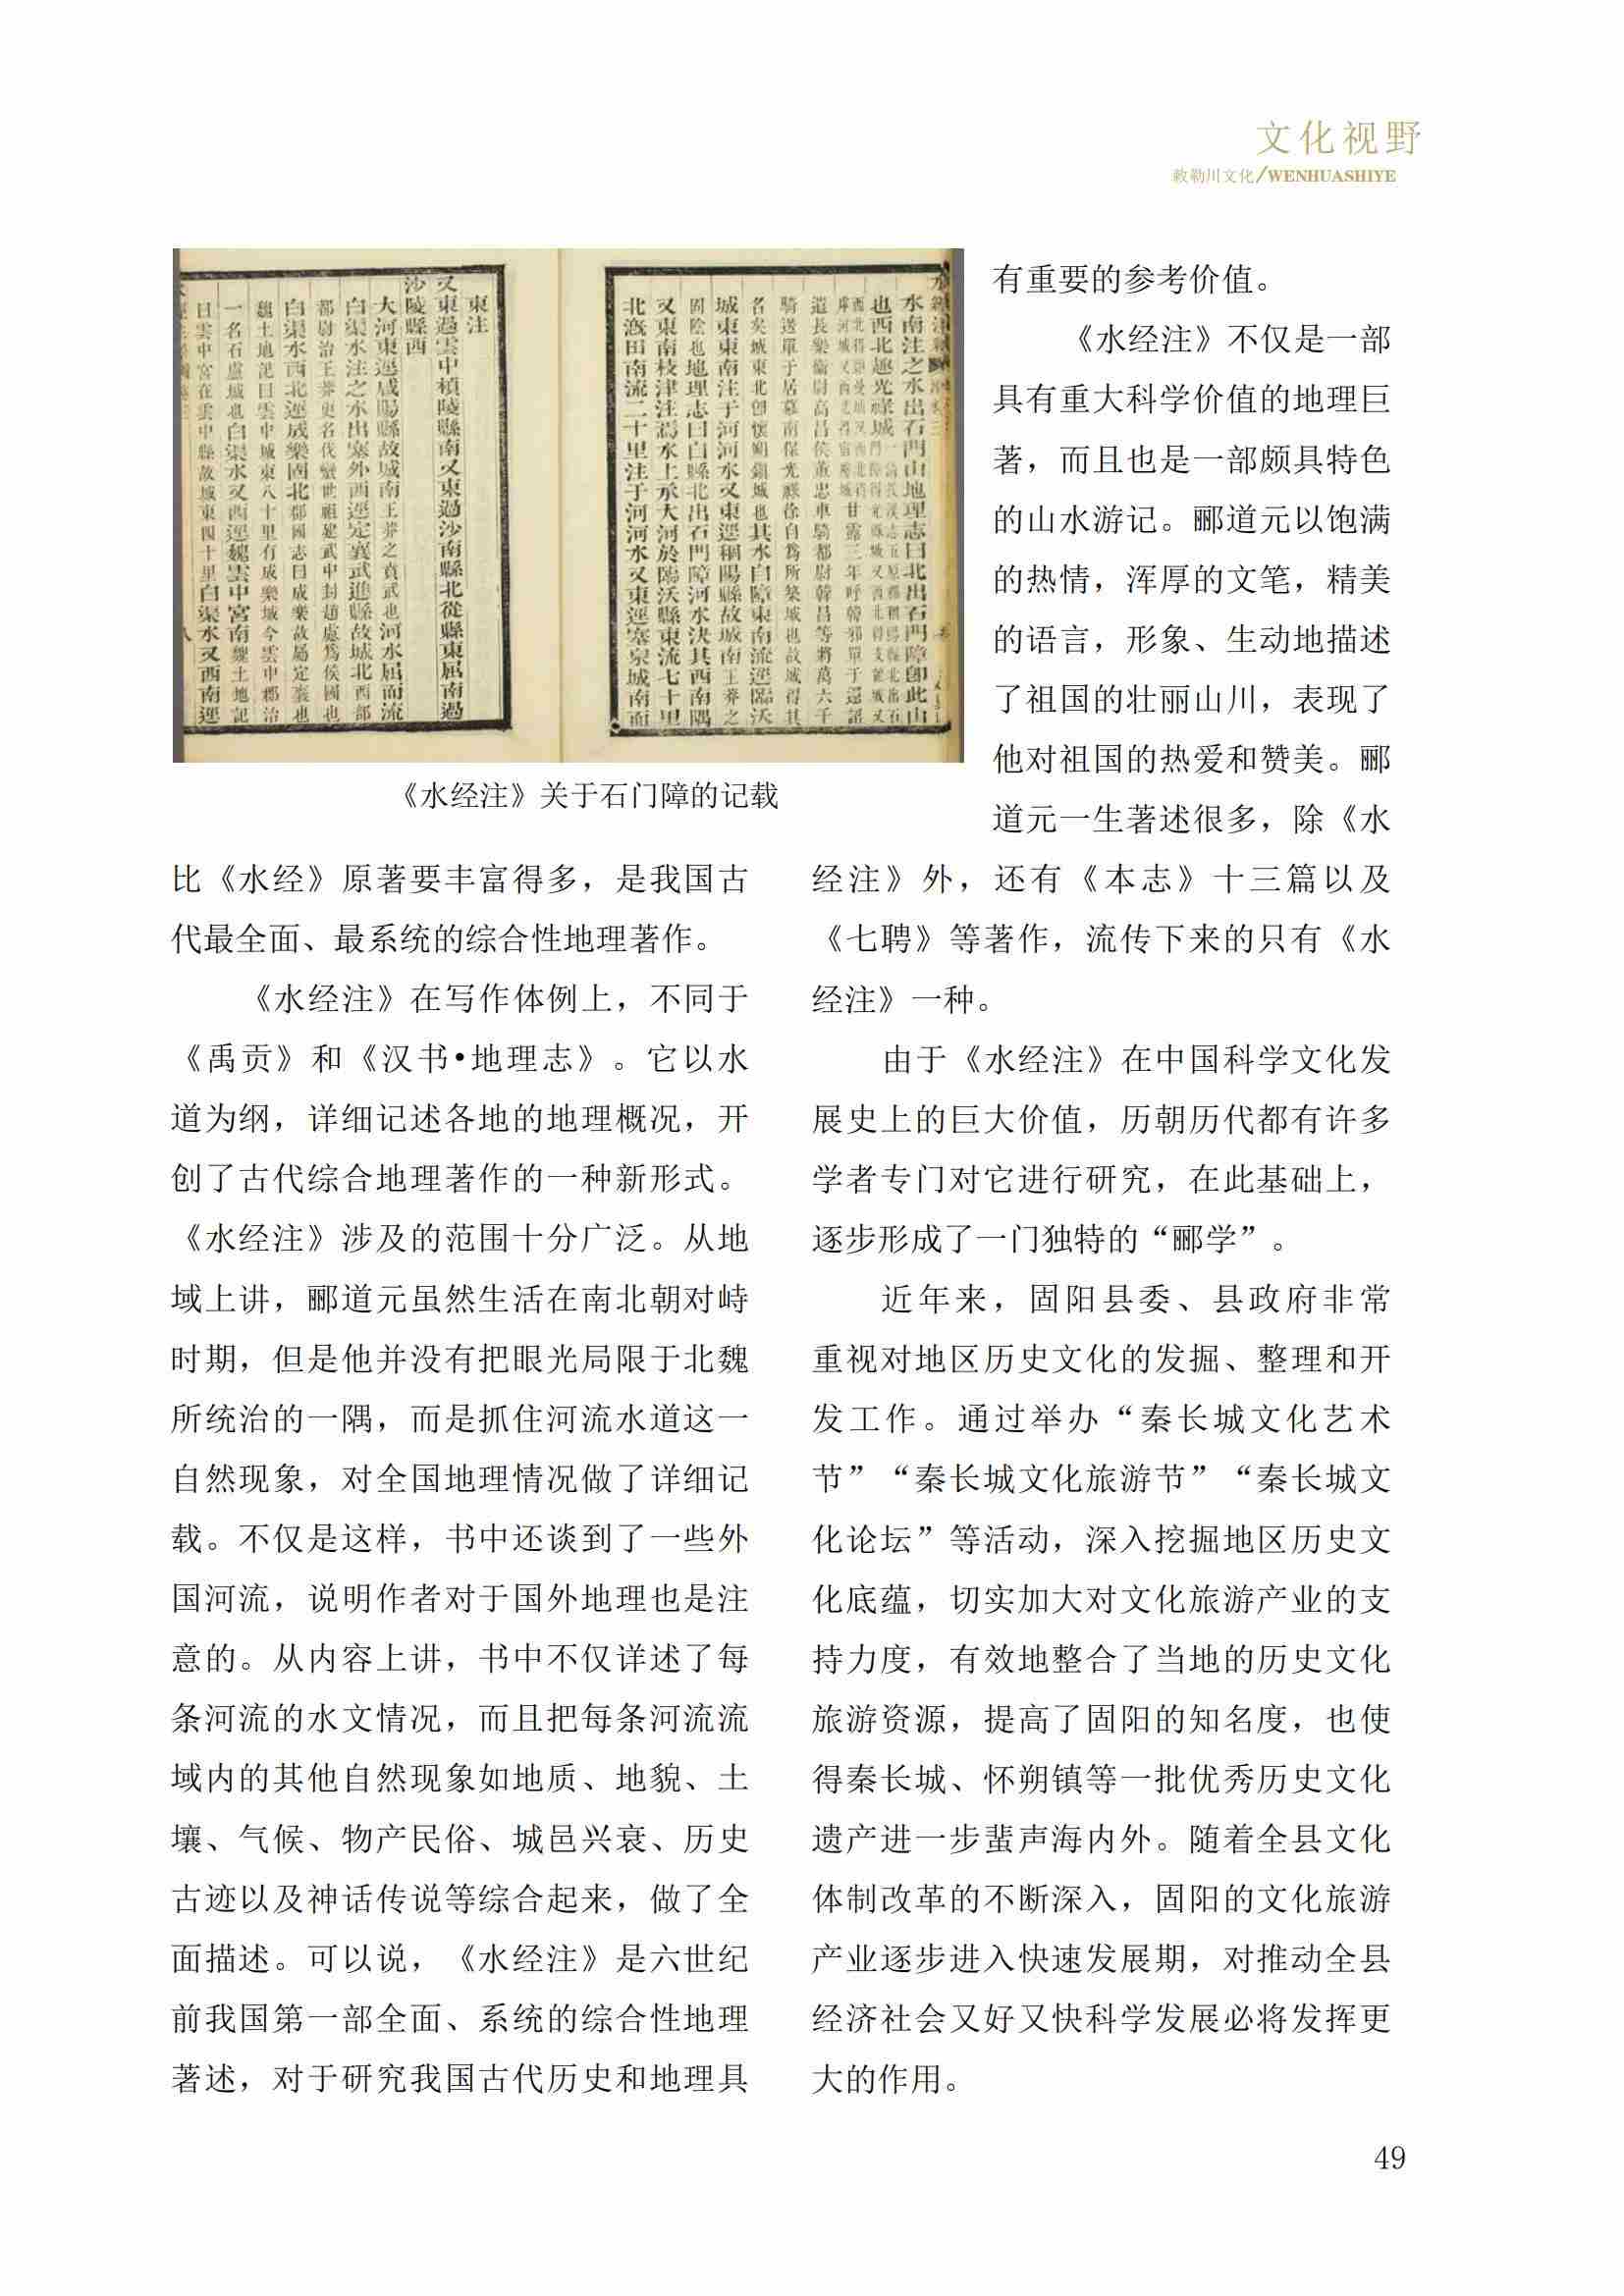 文化视野
敕勒川文化/WENHUASHIYE
东注
又東過雲中楨陵縣南又東過沙南縣北從縣東屈南過
沙陵縣西
《水经注》关于石门障的记载
比《水经》原著要丰富得多，是我国古
代最全面、最系统的综合性地理著作。
《水经注》在写作体例上，不同于
《禹贡》和《汉书•地理志》。它以水
道为纲，详细记述各地的地理概况，开
创了古代综合地理著作的一种新形式。
《水经注》涉及的范围十分广泛。从地
域上讲，郦道元虽然生活在南北朝对峙
时期，但是他并没有把眼光局限于北魏
所统治的一隅，而是抓住河流水道这一
自然现象，对全国地理情况做了详细记
载。不仅是这样，书中还谈到了一些外
国河流，说明作者对于国外地理也是注
意的。从内容上讲，书中不仅详述了每
条河流的水文情况，而且把每条河流流
域内的其他自然现象如地质、地貌、土
壤、气候、物产民俗、城邑兴衰、历史
古迹以及神话传说等综合起来，做了全
面描述。可以说，《水经注》是六世纪
前我国第一部全面、系统的综合性地理
著述，对于研究我国古代历史和地理具
有重要的参考价值。
《水经注》不仅是一部
具有重大科学价值的地理巨
著，而且也是一部颇具特色
的山水游记。郦道元以饱满
的热情，浑厚的文笔，精美
的语言，形象、生动地描述
了祖国的壮丽山川，表现了
他对祖国的热爱和赞美。郦
道元一生著述很多，除《水
经注》外，还有《本志》十三篇以及
《七聘》等著作，流传下来的只有《水
经注》一种。
由于《水经注》在中国科学文化发
展史上的巨大价值，历朝历代都有许多
学者专门对它进行研究，在此基础上，
逐步形成了一门独特的“郦学”。
近年来，固阳县委、县政府非常
重视对地区历史文化的发掘、整理和开
发工作。通过举办“秦长城文化艺术
节”“秦长城文化旅游节”“秦长城文
化论坛”等活动，深入挖掘地区历史文
化底蕴，切实加大对文化旅游产业的支
持力度，有效地整合了当地的历史文化
旅游资源，提高了固阳的知名度，也使
得秦长城、怀朔镇等一批优秀历史文化
遗产进一步蜚声海内外。随着全县文化
体制改革的不断深入，固阳的文化旅游
产业逐步进入快速发展期，对推动全县
经济社会又好又快科学发展必将发挥更
大的作用。
49